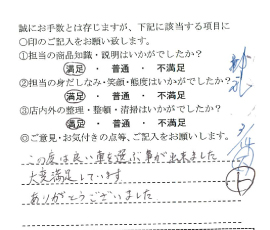 誠にお手数とは存じますが、下記に該当する項目に
○印のご記入をお願い致します。
①担当の商品知識・説明はいかがでしたか?
満足 ・ 普通 ・ 不満足
②担当の身だしなみ・笑顔・態度はいかがでしたか?
満足 ・ 普通 ・ 不満足
③店内外の整理・整頓・清掃はいかがでしたか?
満足 ・ 普通 ・ 不満足
◎ご意見・お気付きの点等、ご記入をお願いします。
この度は良い車を選ぶ事が出来ました
大変満足しています
ありがとうございました